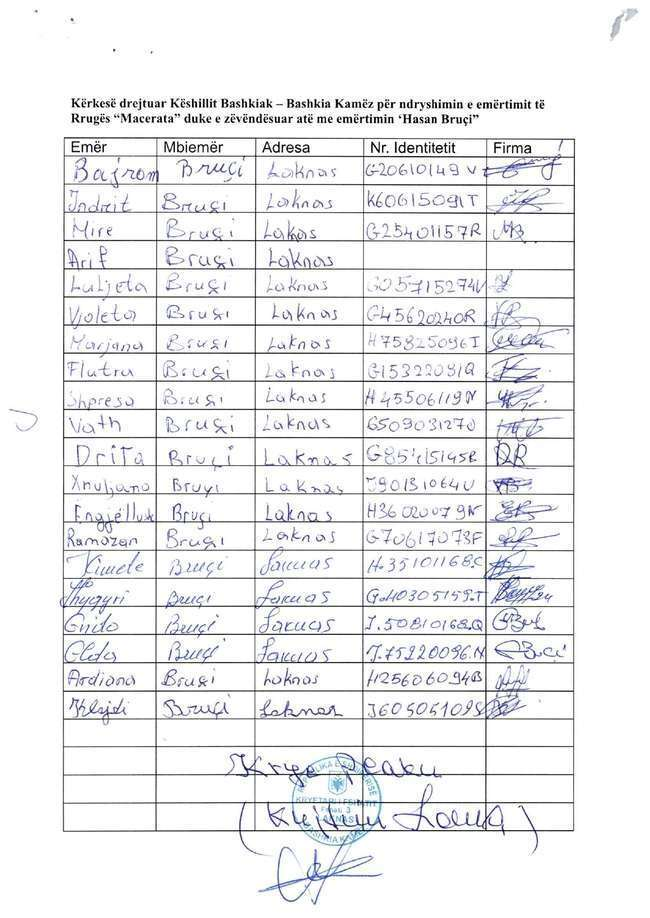 Kërkesë drejtuar Këshillit Bashkiak – Bashkia Kamëz për ndryshimin e emërtimit të
Rrugës "Macerata" duke e zëvëndësuar atë me emërtimin 'Hasan Bruçi"
Emër Mbiemër Adresa Nr. Identitetit Firma
Bajrom Bruçi Laknas G20610149V
Indrit Bruçi Laknas K60615091T
Mire Bruçi Laknas G25401157R MB
Arif Bruçi Laknas
Luljeta Bruçi Laknas G05715274V
Vjoleta Bruçi Laknas G45620240R
Marjana Bruçi Laknas H75825096I
Flutra Bruçi Laknas G15322091Q
Shpresa Bruçi Laknas H45506119N
Vath Bruçi Laknas G50903127O
Drita Bruçi Laknas DR
Bruçi Laknas J90131064U
Bruçi Laknas H36020079N
Ramazan Bruçi Laknas G70617073F
Bruçi Laknas H.35101168.C
Bruçi Laknas G.40305159.T
Bruçi Laknas I.50810168.Q
Elda Bruçi Laknas J.75220096.N
Ardiana Bruçi Laknas H25606094B
Klajdi Bruçi Laknas J60505109S
Krye Plaku
REPUBLIKA E SHQIPËRISË
KRYETARI I FSHATIT
LAKNAS
BASHKIA KAMËZ